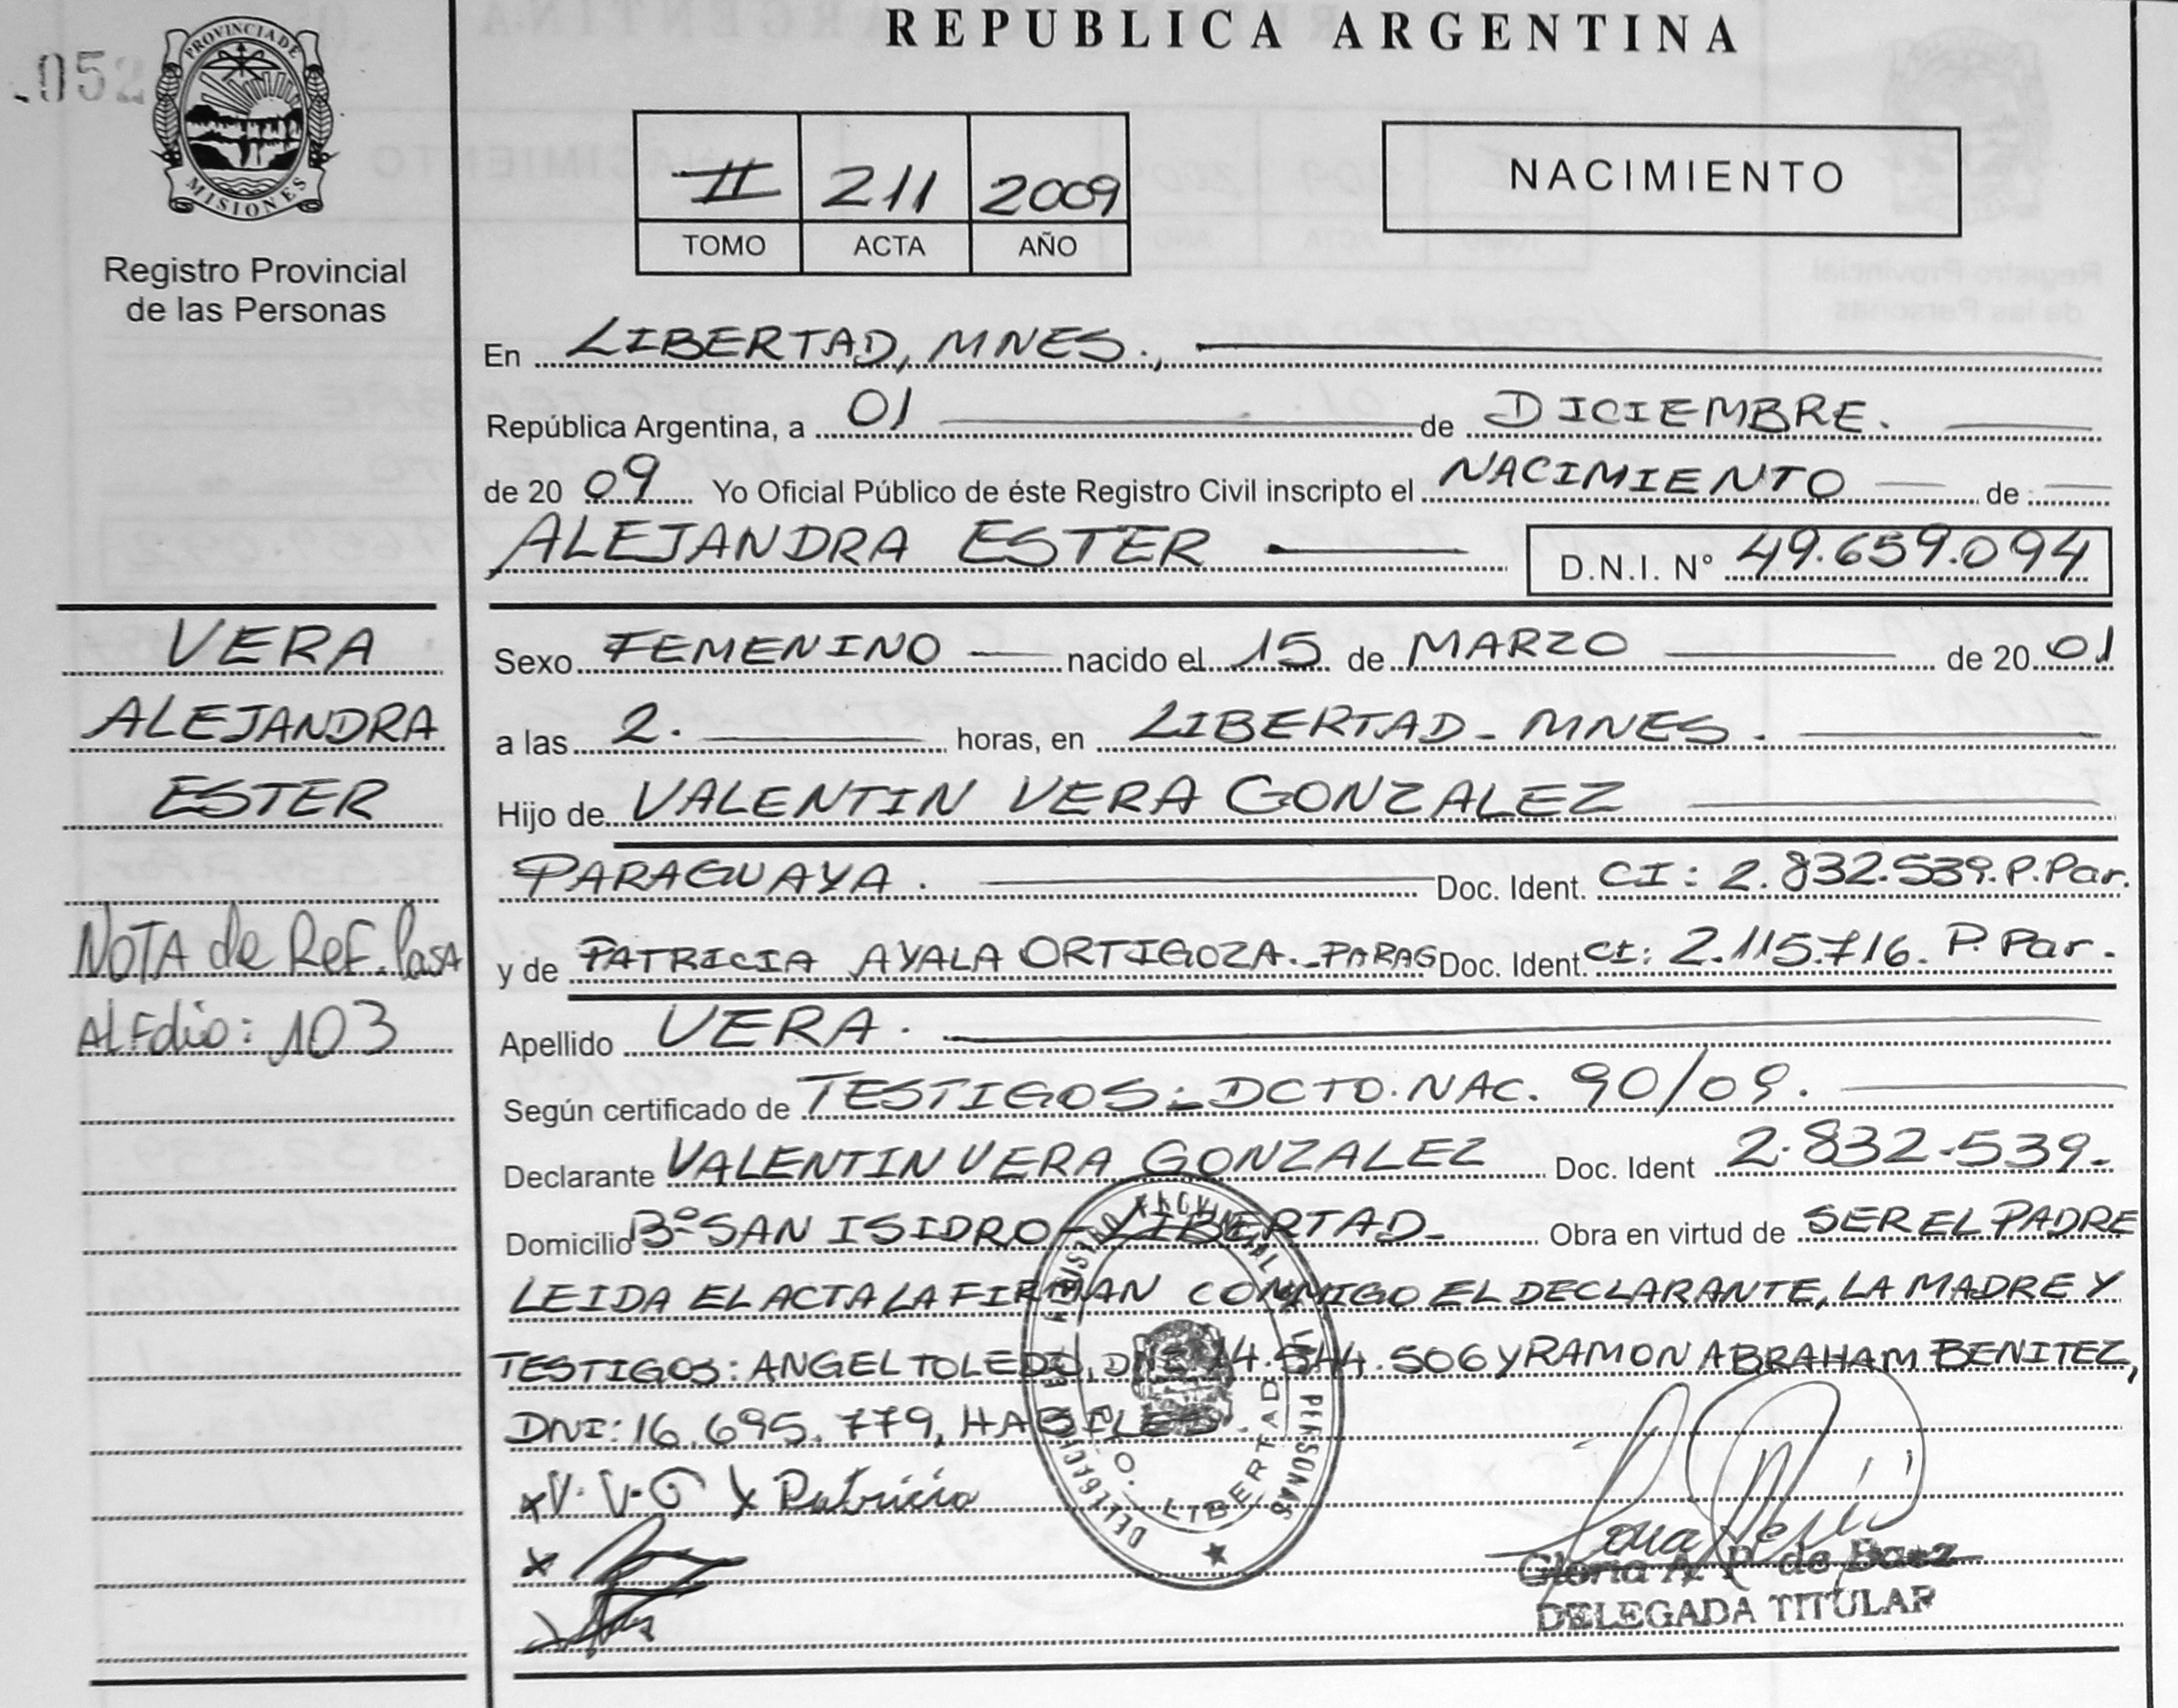 REPUBLICA ARGENTINA
.052
PROVINCIA DE
MISIONES
Registro Provincial
de las Personas
II 211 2009
TOMO ACTA AÑO
NACIMIENTO
En LIBERTAD, MNES.,
República Argentina, a 01 de DICIEMBRE.
de 20 09 Yo Oficial Público de éste Registro Civil inscripto el NACIMIENTO de
ALEJANDRA ESTER D.N.I. N° 49.659.094
VERA
ALEJANDRA
ESTER
NOTA de Ref. Pasa
Al Folio: 103
Sexo FEMENINO nacido el 15 de MARZO de 20 01
a las 2. horas, en LIBERTAD - MNES.
Hijo de VALENTIN VERA GONZALEZ
PARAGUAYA. Doc. Ident. CI: 2.832.539. P. Par.
y de PATRICIA AYALA ORTIGOZA.-PARAG Doc. Ident CI: 2.115.716. P. Par.
Apellido VERA.
Según certificado de TESTIGOS: DCTO. NAC. 90/09.
Declarante VALENTIN VERA GONZALEZ Doc. Ident 2.832.539.-
Domicilio B° SAN ISIDRO - LIBERTAD- Obra en virtud de SER EL PADRE
LEIDA EL ACTA LA FIRMAN CONMIGO EL DECLARANTE, LA MADRE Y
TESTIGOS: ANGEL TOLEDO, DNI 14.544.506 Y RAMON ABRAHAM BENITEZ,
DNI: 16.695.779, HABILES.
x V. V. G x Patricia
x
LIBERTAD
PERSONAS
Gloria A. P. de Baez
DELEGADA TITULAR